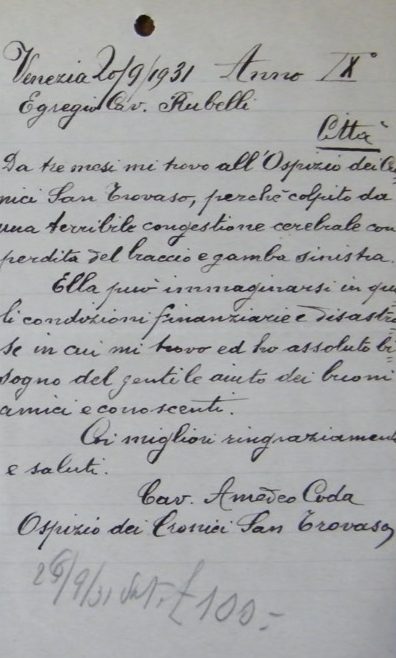 Venezia 20/9/1931 Anno IX°
Egregio Cav. Rubelli
Città
Da tre mesi mi trovo all'Ospizio dei Cro
nici San Trovaso, perchè colpito da
una terribile congestione cerebrale con
perdita del braccio e gamba sinistra.
Ella può immaginarsi in qua
li condizioni finanziarie e disastro
se in cui mi trovo ed ho assoluto bi
sogno del gentile aiuto dei buoni
amici e conoscenti.
Coi migliori ringraziamenti
e saluti.
Cav. Amedeo Coda
Ospizio dei Cronici San Trovaso
/9/31 £ 100.-